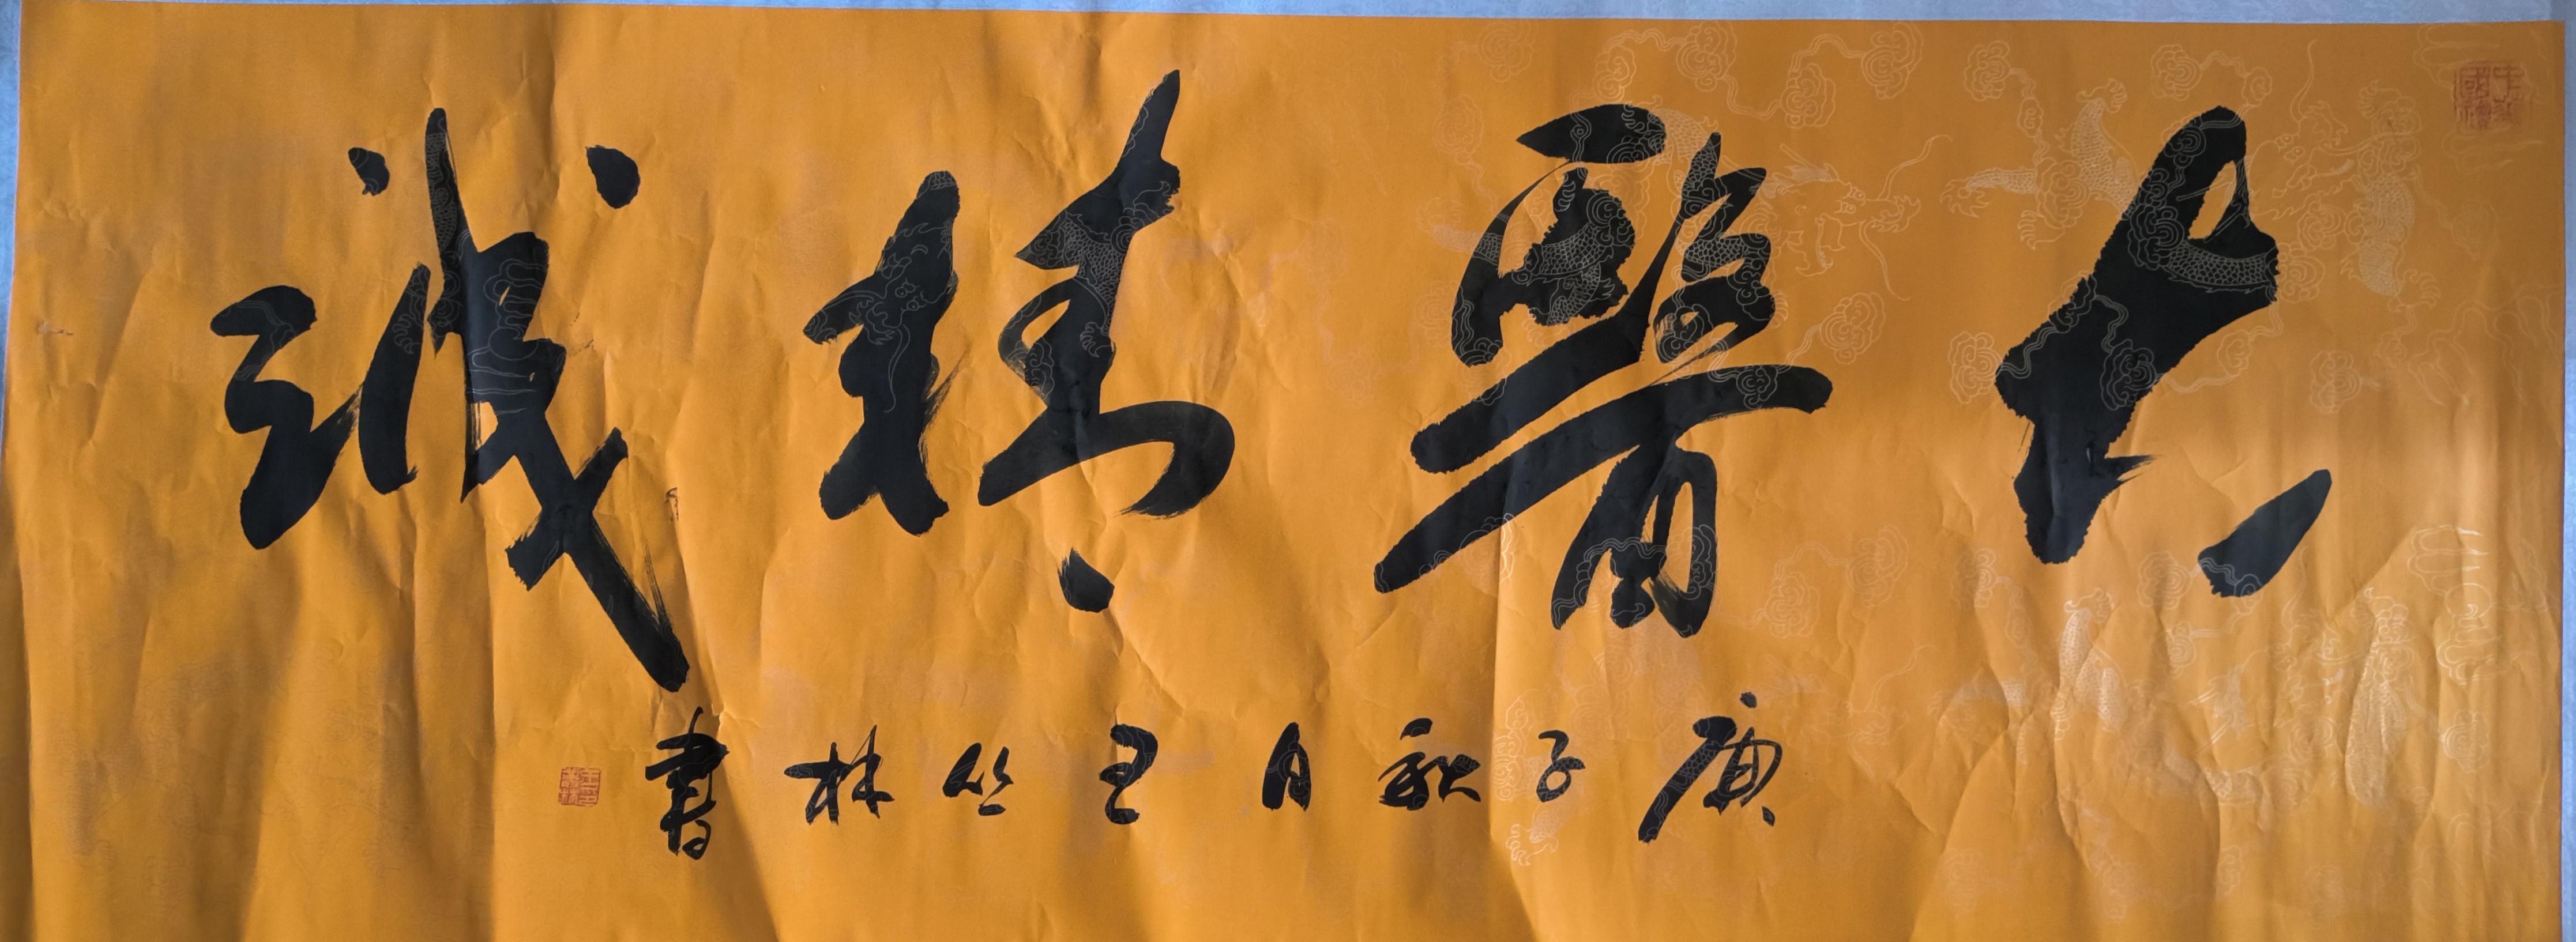 大醫精誠
庚子秋月王竹林書